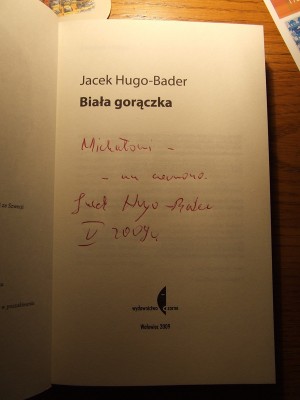 Jacek Hugo-Bader
Biała gorączka
Michałowi -
Jacek Hugo-Bader
V 2009
wydawnictwo czarne
Wołowiec 2009